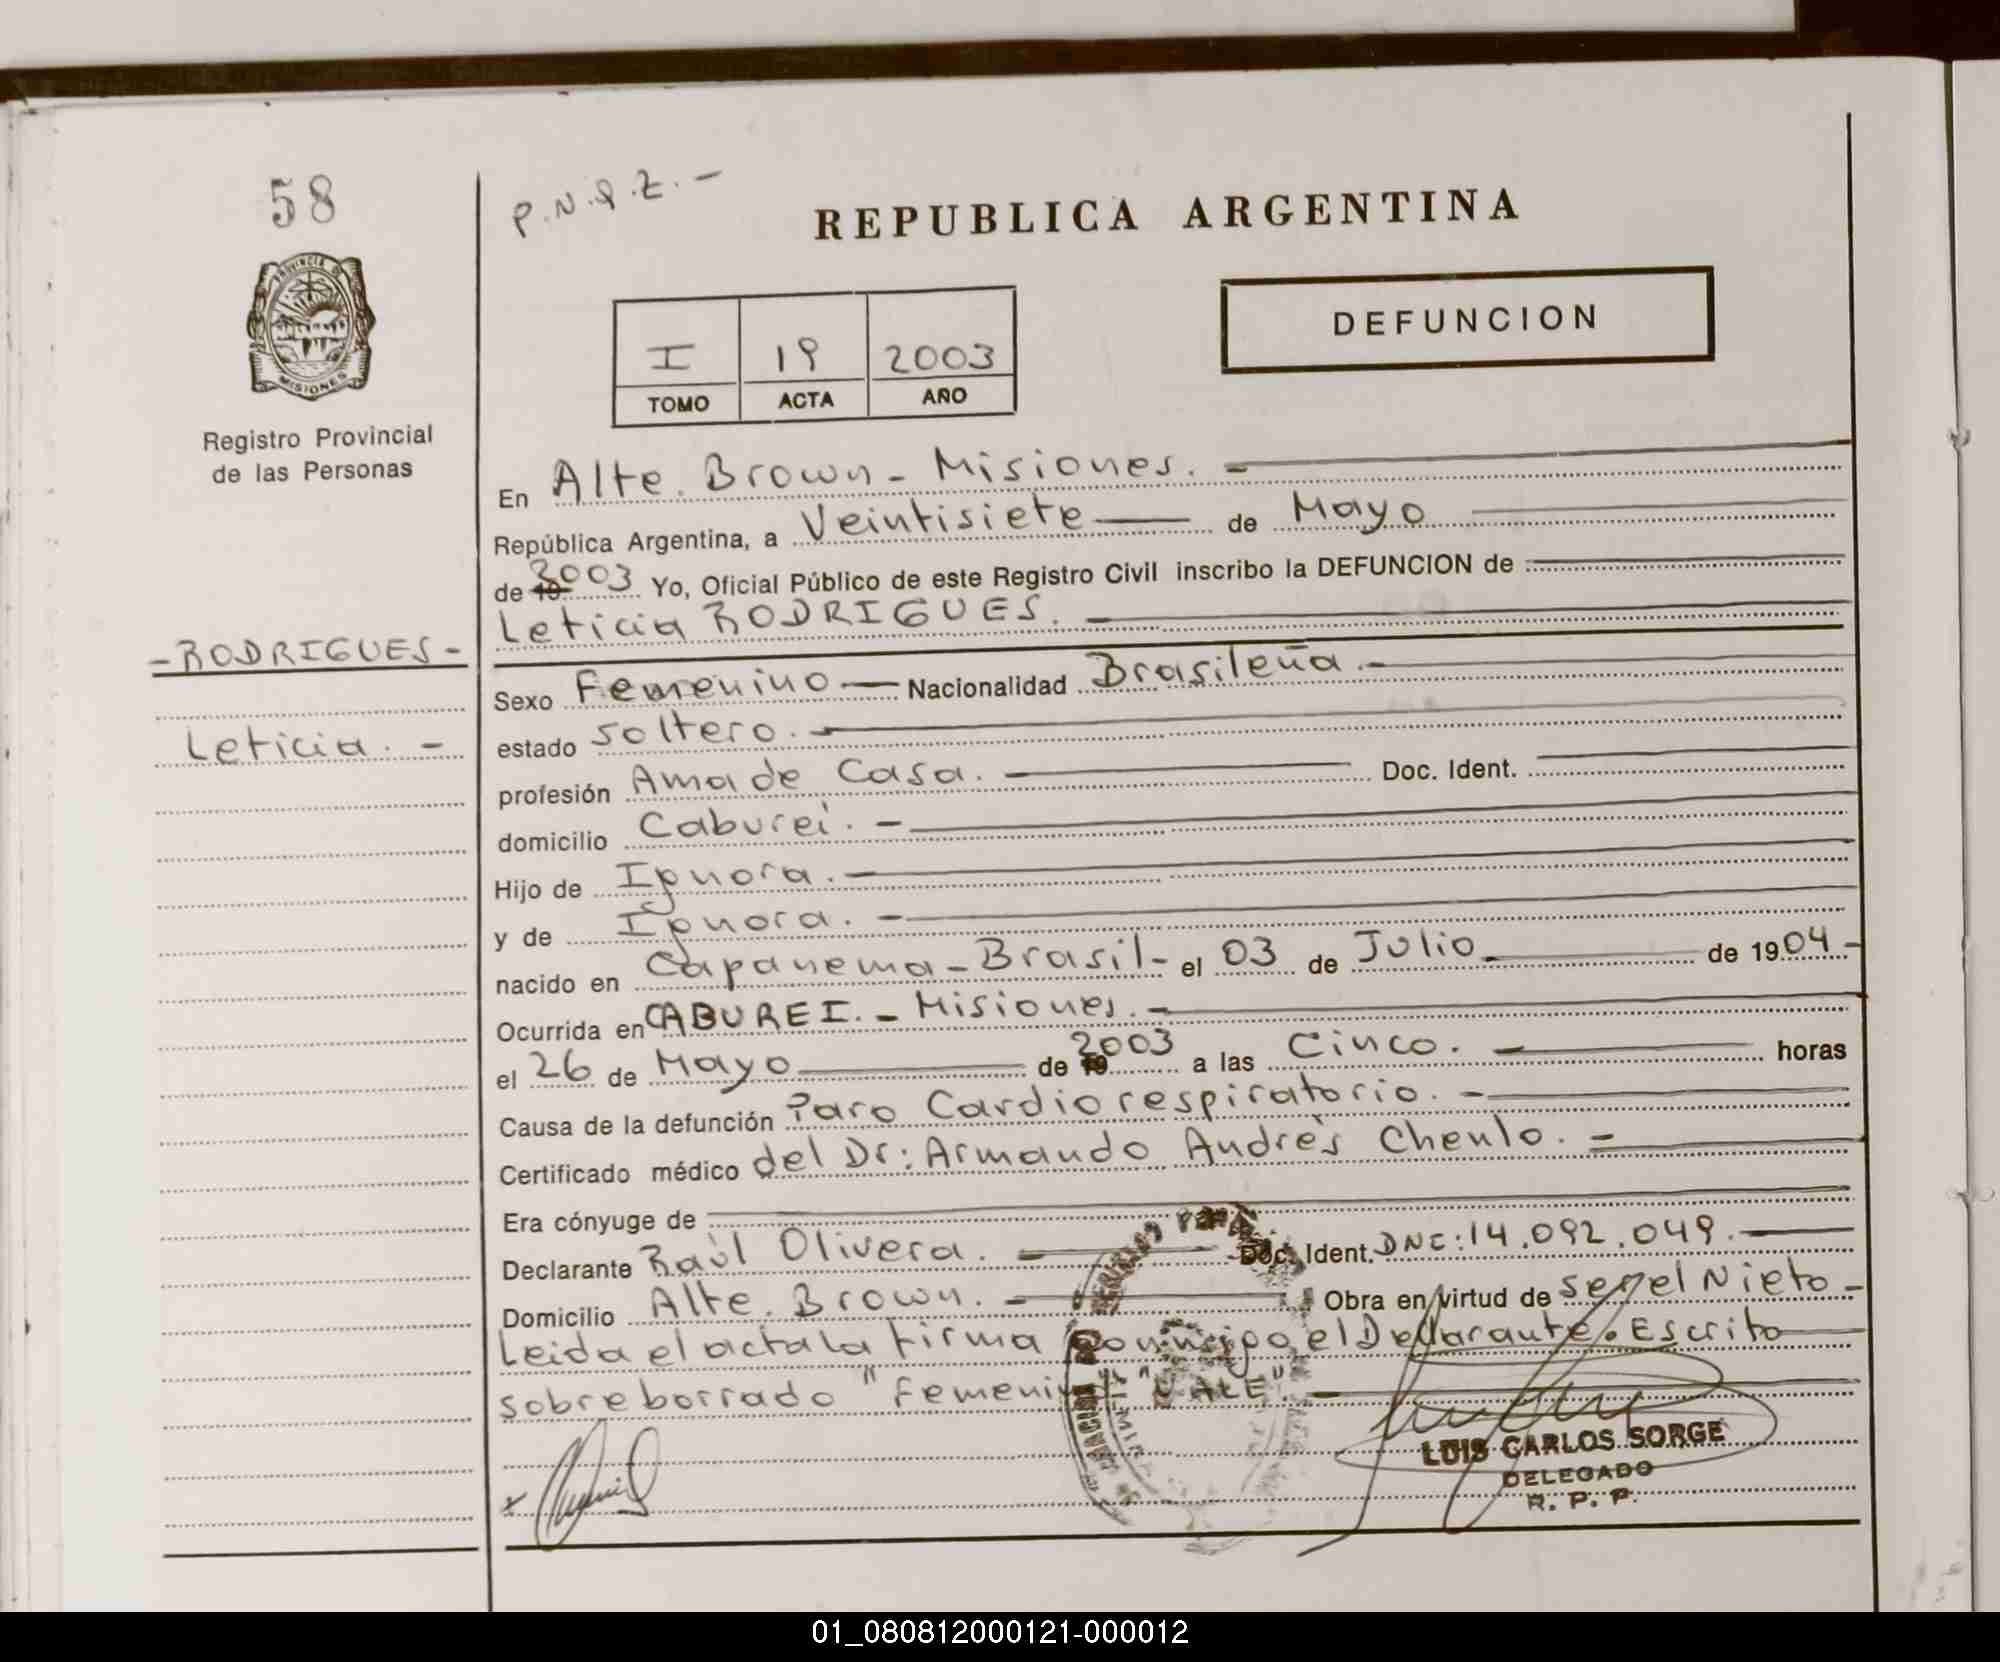 58
P.N.Q.Z. -
REPUBLICA ARGENTINA
PROVINCIA DE
MISIONES
Registro Provincial
de las Personas
I 19 2003
TOMO ACTA AÑO
DEFUNCION
En Alte. Brown - Misiones. -
República Argentina, a Veintisiete de Mayo
de 19 2003 Yo, Oficial Público de este Registro Civil inscribo la DEFUNCION de
Leticia RODRIGUES. -
- RODRIGUES -
Leticia. -
Sexo Femenino - Nacionalidad Brasileña. -
estado soltero. -
profesión Ama de Casa. - Doc. Ident.
domicilio Cabureí. -
Hijo de Ignora. -
y de Ignora. -
nacido en Capanema - Brasil - el 03 de Julio de 1904 -
Ocurrida en CABUREI. - Misiones. -
el 26 de Mayo de 19 2003 a las Cinco. - horas
Causa de la defunción Paro Cardiorespiratorio. -
Certificado médico del Dr: Armando Andrés Chenlo. -
Era cónyuge de
Declarante Raúl Olivera. - Doc. Ident. DNI: 14.092.049. -
Domicilio Alte. Brown. - Obra en virtud de ser el Nieto -
Leida el acta la firma conmigo el Declarante. Escrito
sobre borrado "Femenino" "VALE". -
LUIS CARLOS SORGE
DELEGADO
R. P. P.
01_080812000121-000012